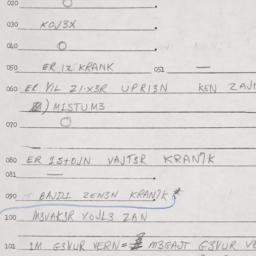 020
030 KOJ3X
040
050 ER IZ KRANK 051 —
060 ER VIL ZI·X3R UPRI3N KEN ZAJ
) MISTUM3
070
080 ER ISTOJN VAJT3R KRANK
081 —
090 BAJDI ZEN3N KRANK
100 M3VAK3R XOJL3 ZAN
101 IM G3VUR VERN= M3GAJT G3VUR VE